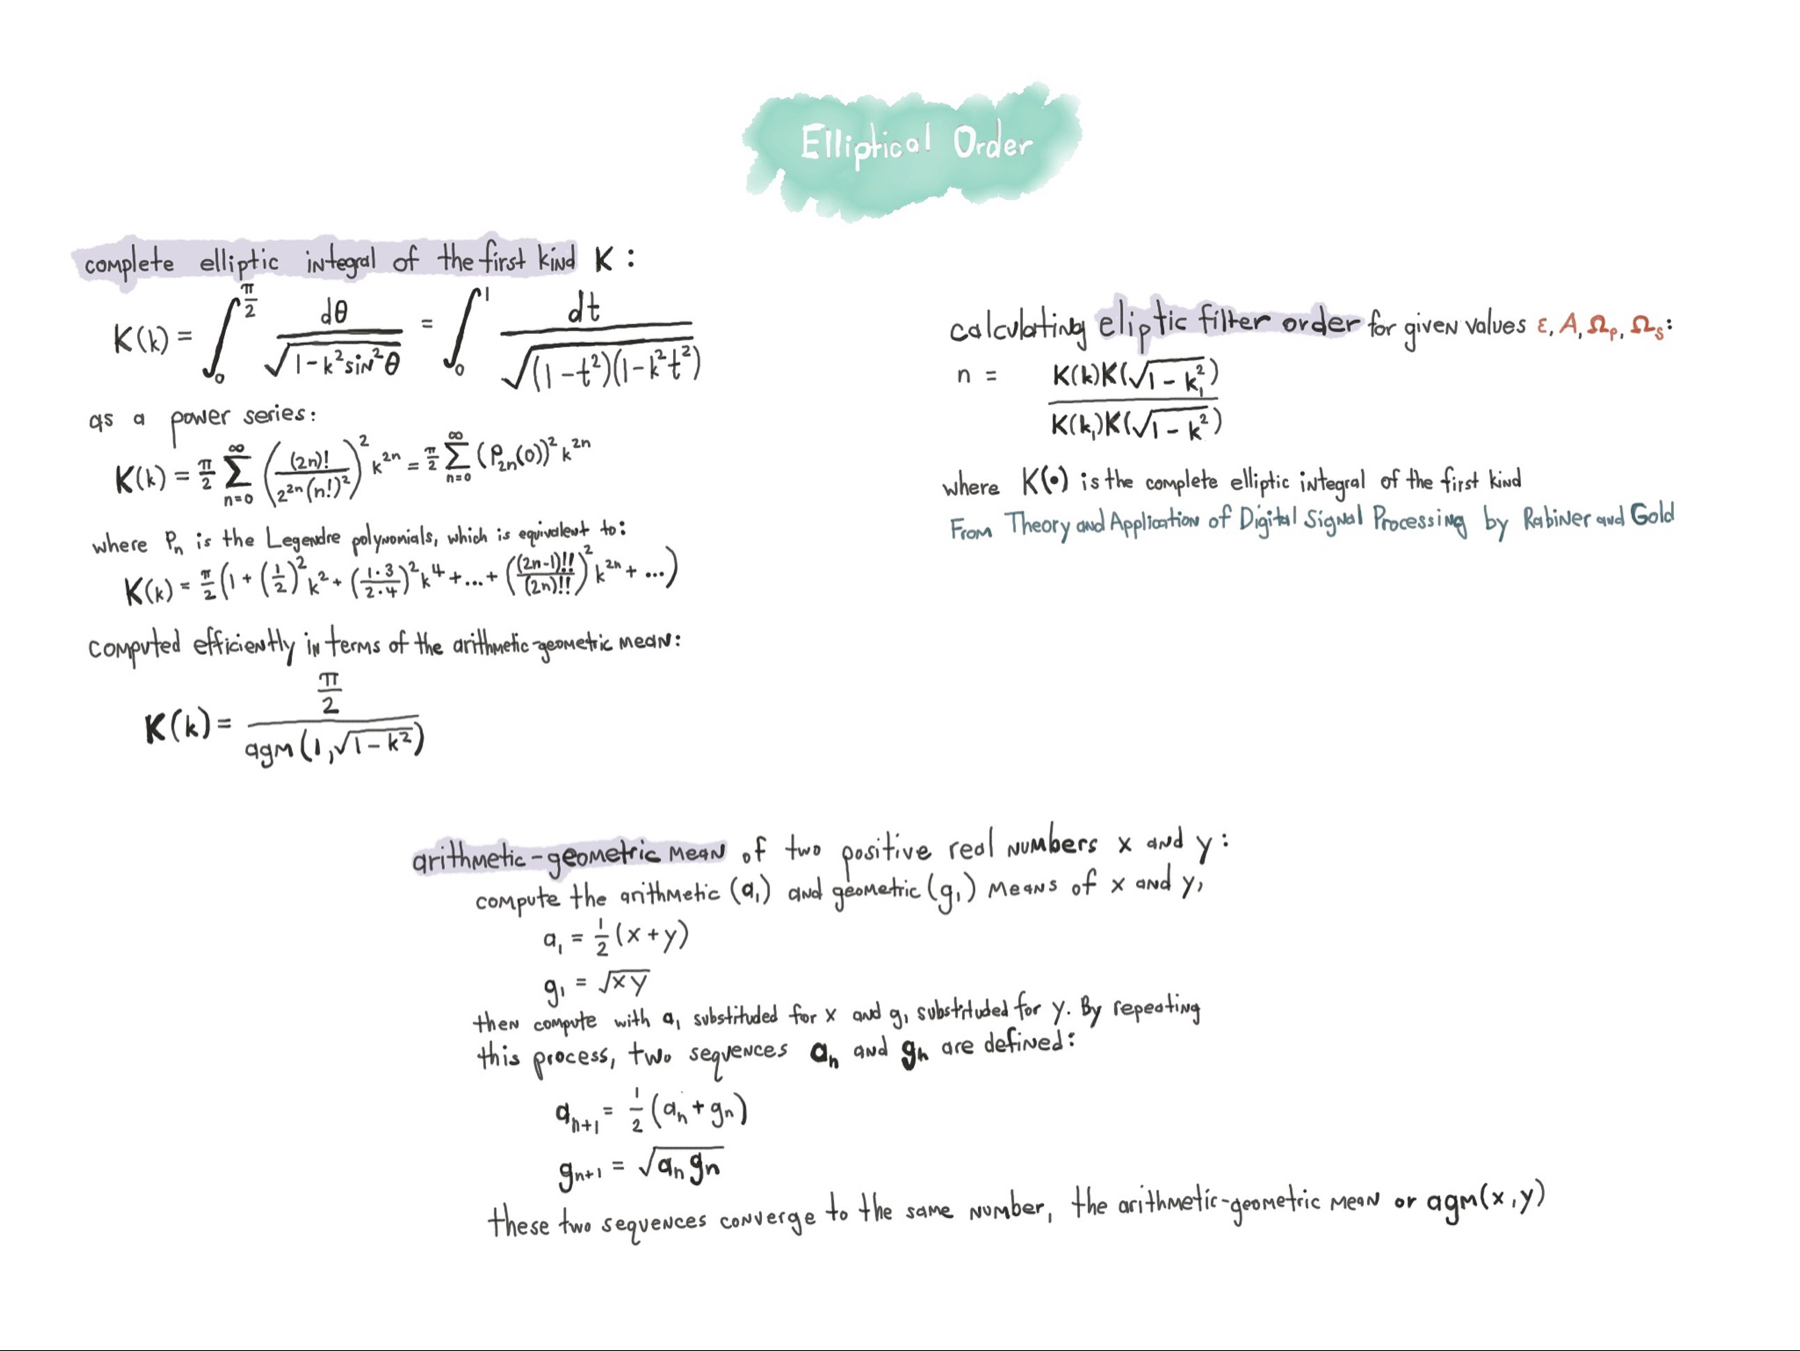 Elliptical Order
complete elliptic integral of the first kind K :
K(k) = ∫₀^{π/2} dθ / √(1-k²sin²θ) = ∫₀^1 dt / √((1-t²)(1-k²t²))
as a power series:
K(k) = π/2 ∑_{n=0}^{∞} ((2n)! / 2^{2n}(n!)²)² k^{2n} = π/2 ∑_{n=0}^{∞} (P_{2n}(0))² k^{2n}
where Pₙ is the Legendre polynomials, which is equivalent to:
K(k) = π/2 (1 + (1/2)² k² + (1·3 / 2·4)² k⁴ + ... + ((2n-1)!! / (2n)!!)² k^{2n} + ...)
computed efficiently in terms of the arithmetic-geometric mean:
K(k) = (π/2) / agm(1, √(1-k²))
calculating eliptic filter order for given values ε, A, Ωₚ, Ωₛ:
n = K(k)K(√(1-k₁²)) / K(k₁)K(√(1-k²))
where K(•) is the complete elliptic integral of the first kind
From Theory and Application of Digital Signal Processing by Rabiner and Gold
arithmetic-geometric mean of two positive real numbers x and y:
compute the arithmetic (a₁) and geometric (g₁) means of x and y,
a₁ = 1/2 (x+y)
g₁ = √(xy)
then compute with a₁ substituted for x and g₁ substituted for y. By repeating
this process, two sequences aₙ and gₙ are defined:
aₙ₊₁ = 1/2 (aₙ + gₙ)
gₙ₊₁ = √(aₙ gₙ)
these two sequences converge to the same number, the arithmetic-geometric mean or agm(x,y)